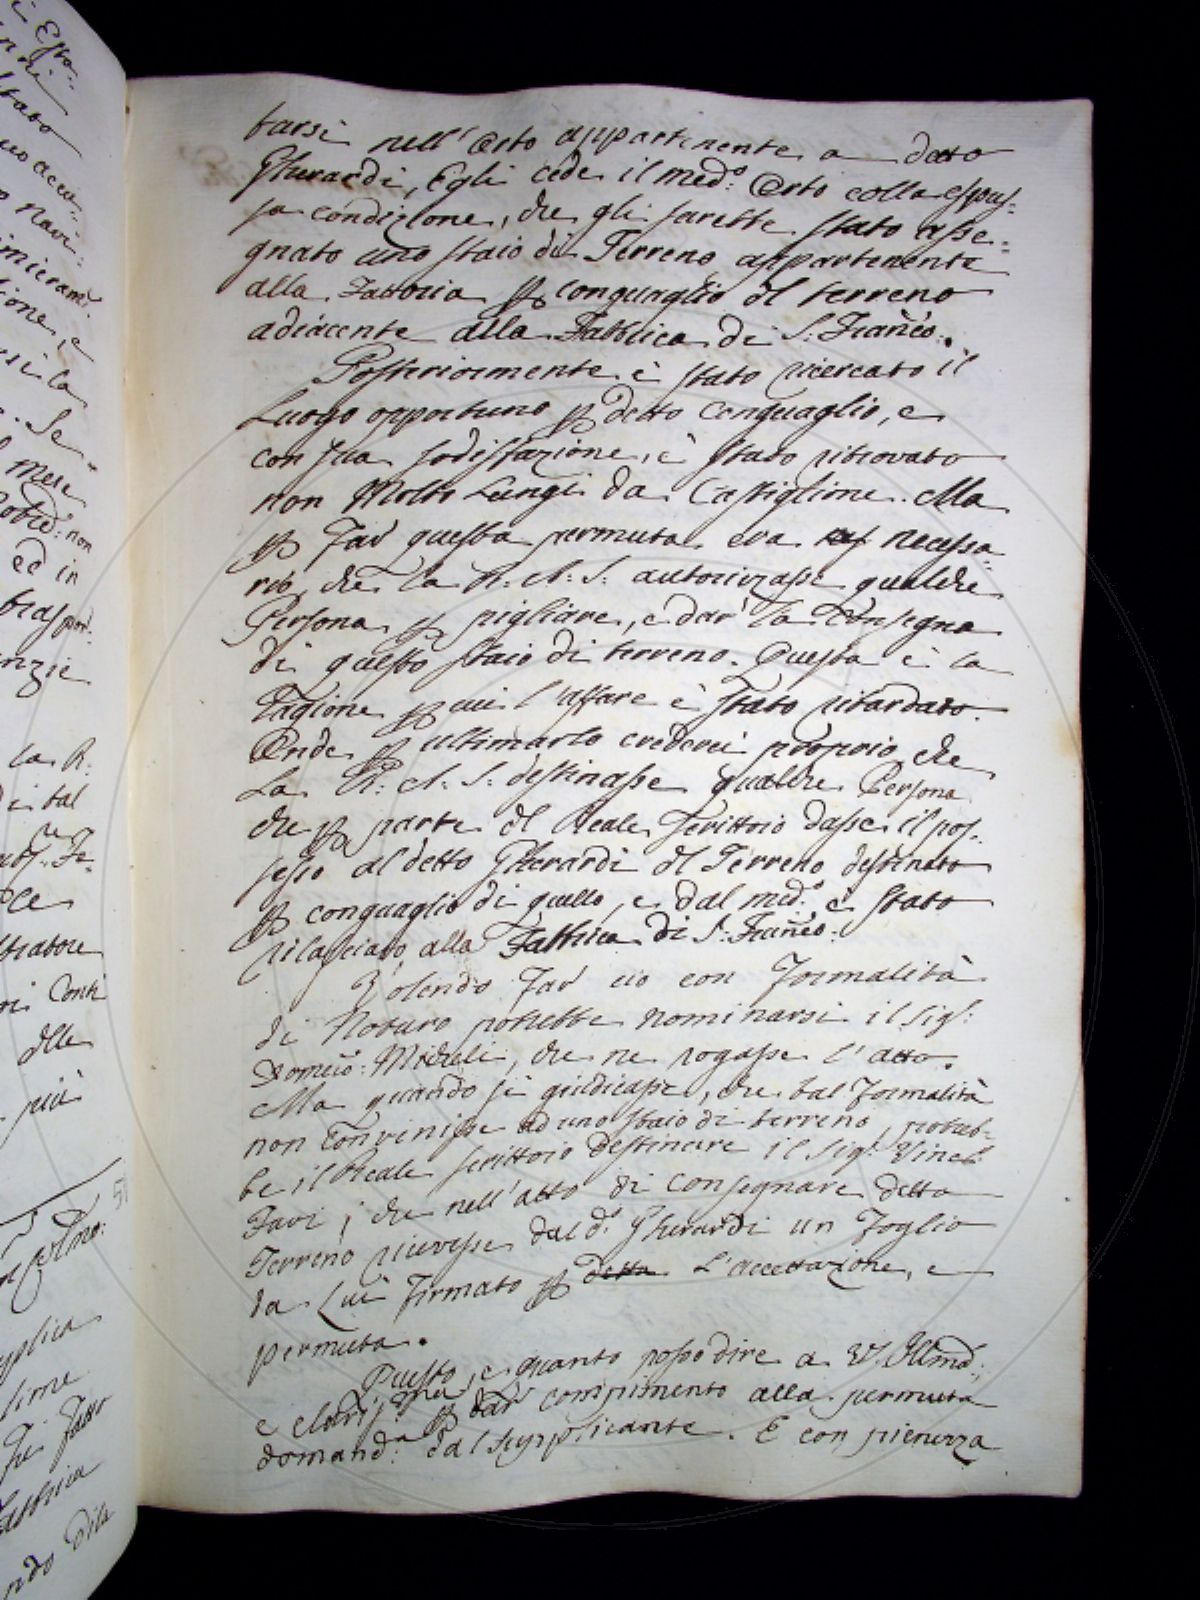 tarsi nell'Orto appartenente a detto
Gherardi, Egli cede il med.º Orto colla espres-
sa condizione, che gli sarebbe stato asse-
gnato uno staio di Terreno appartenente
alla Fattoria p conguaglio del terreno
adiacente alla Fabbrica di S: Franco:.
Posteriormente è stato ricercato il
Luogo opportuno p detto Conguaglio, e
con sua sodisfazione, è stato ritrovato
non Molto Lungi da Castiglione. Ma
p far questa permuta era necessa-
rio, che la R: A: S: autorizzasse qualche
Persona p pigliare, e dar la Consegna
di questo staio di terreno. Questa è la
Ragione p cui l'affare è stato ritardato.
Onde p ultimarlo crederei proprio che
La R: A: S: destinasse qualche Persona
che p parte del Reale Scrittoio dasse il pos-
sesso al detto Gherardi del Terreno destinato
p conguaglio di quello, e dal med.º è stato
rilasciato alla Fabbrica di S: Franco:
Volendo far ciò con formalità
di Notaro potrebbe nominarsi il Sig:
Domco: Micheli, che ne rogasse l'atto.
Ma quando si giudicasse, che tal formalità
non Convenisse ad uno staio di terreno, potreb-
be il Reale Scrittoio destinare il Sig: Vinc:
Favi, che nell'atto di Consegnare detto
Terreno ricevesse dal d.º Gherardi un Foglio
da Lui firmato p detta L'accettazione, e
permuta.
Questo, e quanto posso dire a V. Illma:
e Clariss:ma p dar compimento alla permuta
domand:a dal supplicante. E con pienezza
Esta-
stato
navi-
e
la
Se-
Mese
non
ed in
traspor-
la R:
di tal
Fe-
Conti
delle
più
51
Fabbrica